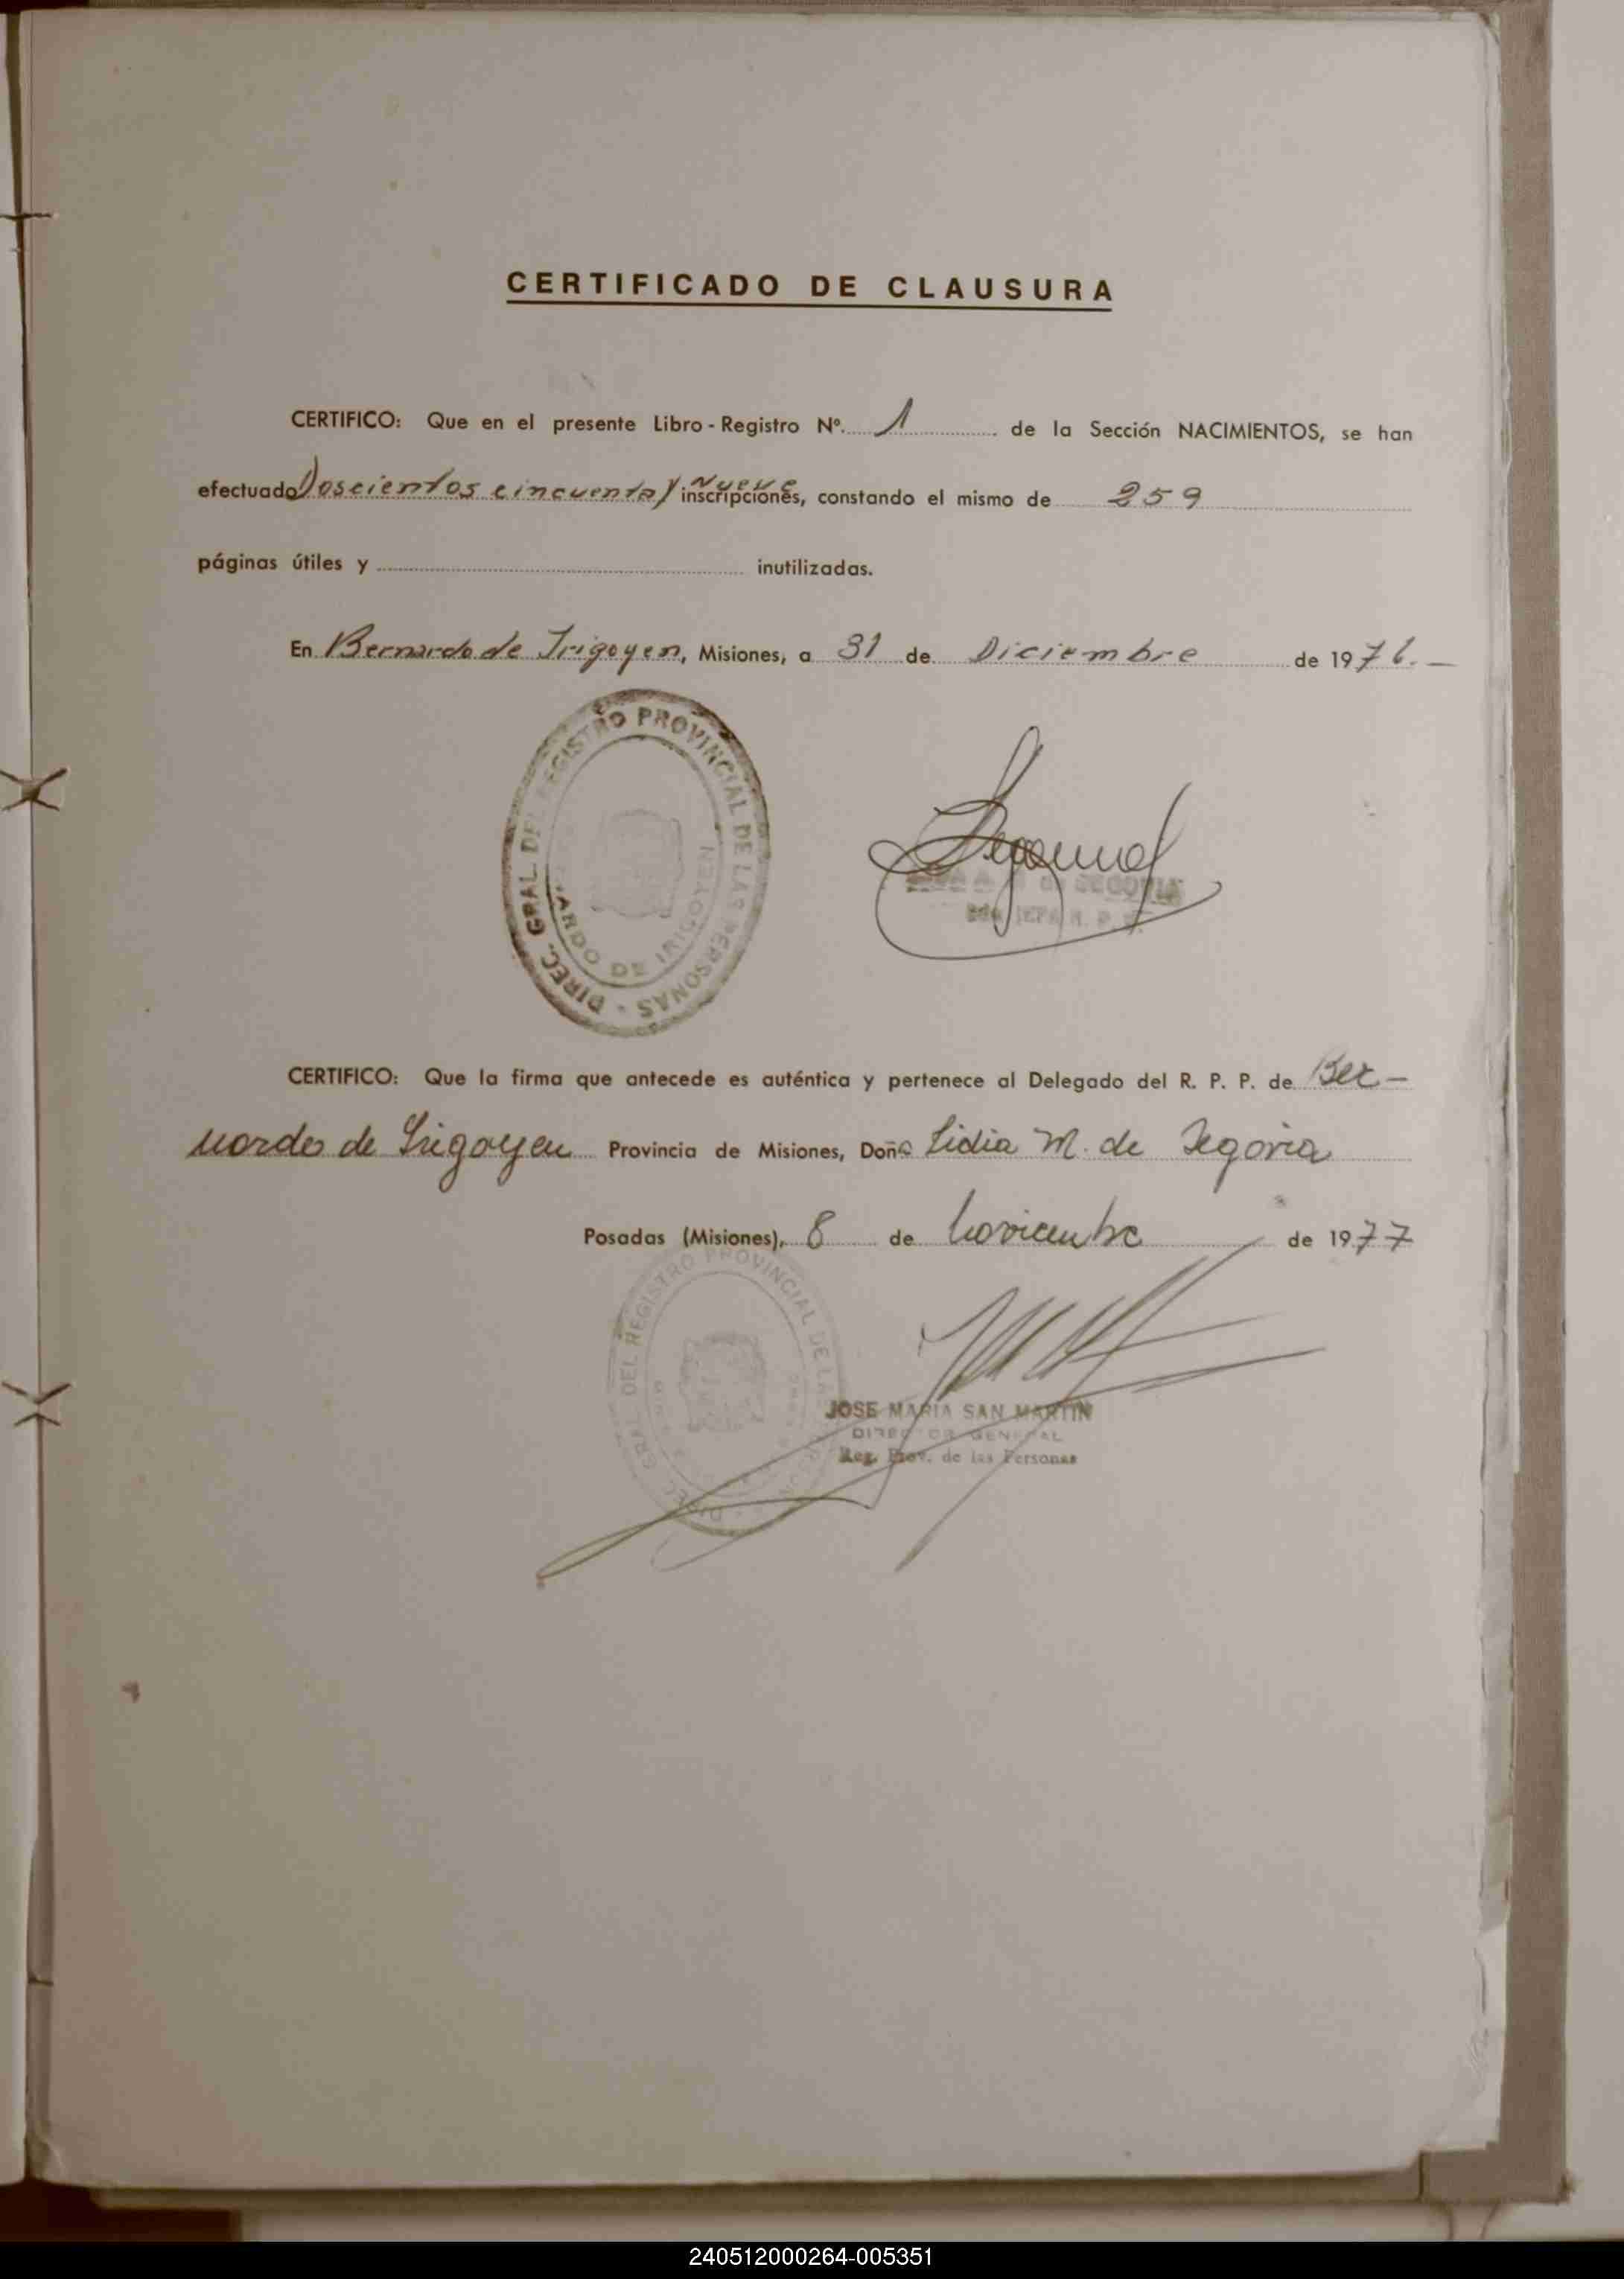 CERTIFICADO DE CLAUSURA
CERTIFICO: Que en el presente Libro - Registro Nº. 1 de la Sección NACIMIENTOS, se han
efectuado Doscientos cincuenta y nueve inscripciones, constando el mismo de 259
páginas útiles y inutilizadas.
En Bernardo de Irigoyen, Misiones, a 31 de Diciembre de 1976.-
DIREC. GRAL. DEL REGISTRO PROVINCIAL DE LAS PERSONAS -
DE IRIGOYEN
CERTIFICO: Que la firma que antecede es auténtica y pertenece al Delegado del R. P. P. de Ber-
nardo de Irigoyen Provincia de Misiones, Doña Lidia M. de Segovia
Posadas (Misiones), 8 de Noviembre de 1977
DIREC. GRAL. DEL REGISTRO PROVINCIAL DE
JOSE MARIA SAN MARTIN
DIRECTOR GENERAL
Reg. Prov. de las Personas
240512000264-005351